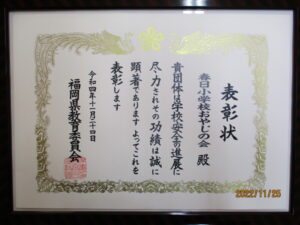 表彰状
春日小学校おやじの会 殿
貴団体は学校安全の進展に
尽力されその功績は誠に
顕著であります よってこれを
表彰します
令和四年十一月二十四日
福岡県教育委員会
2022/11/25